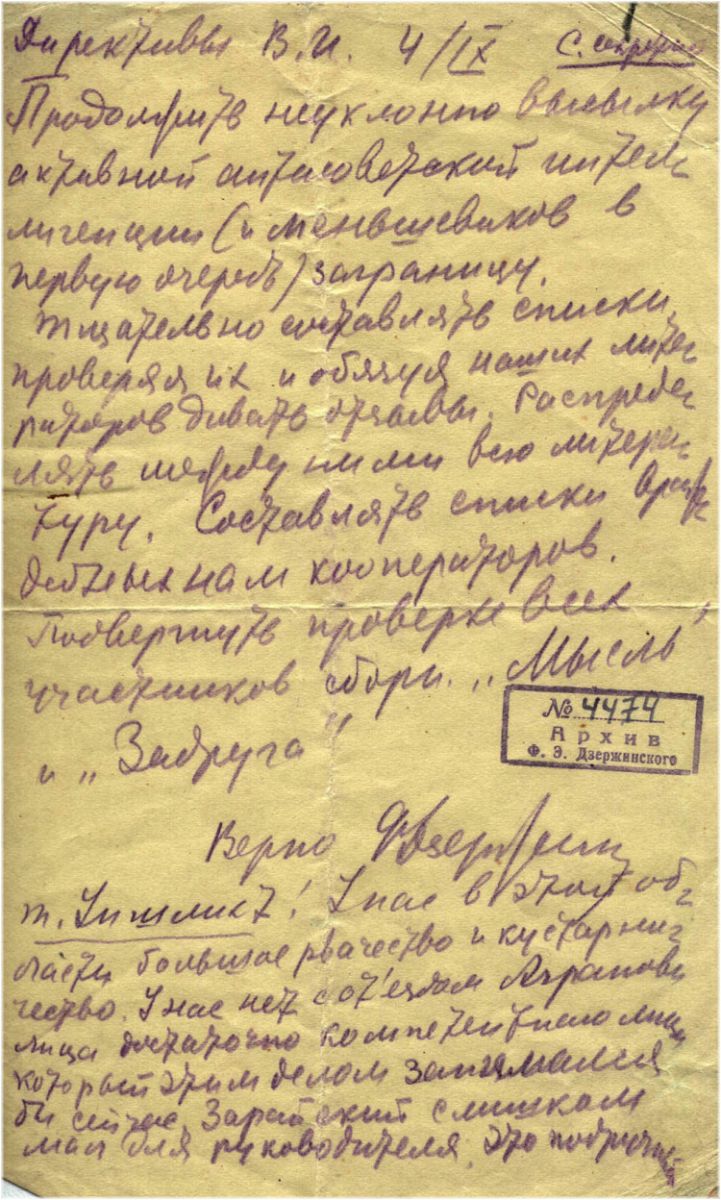 Директивы В.И. 4/IX С. секретно
Продолжить неуклонно высылку
активной антисоветской интел-
лигенции (и меньшевиков в
первую очередь) заграницу.
Тщательно составлять списки,
проверяя их и обязуя наших лите-
раторов давать отзывы. Распреде-
лять между ними всю литера-
туру. Составлять списки враж-
дебных нам кооператоров.
Подвергнуть проверке всех
участников сборн. „Мысль"
и „Задруга"
№ 4474
Архив
Ф. Э. Дзержинского
Верно Ф Дзержинск
т. Уншлихт! У нас в этой об-
ласти большое рвачество и кустарни-
чество. У нас нет с от'ездом Агранова
лица достаточно компетентного
который этим делом занимался
бы сейчас. Зарайский слишком
мал для руководителя. Это подручный